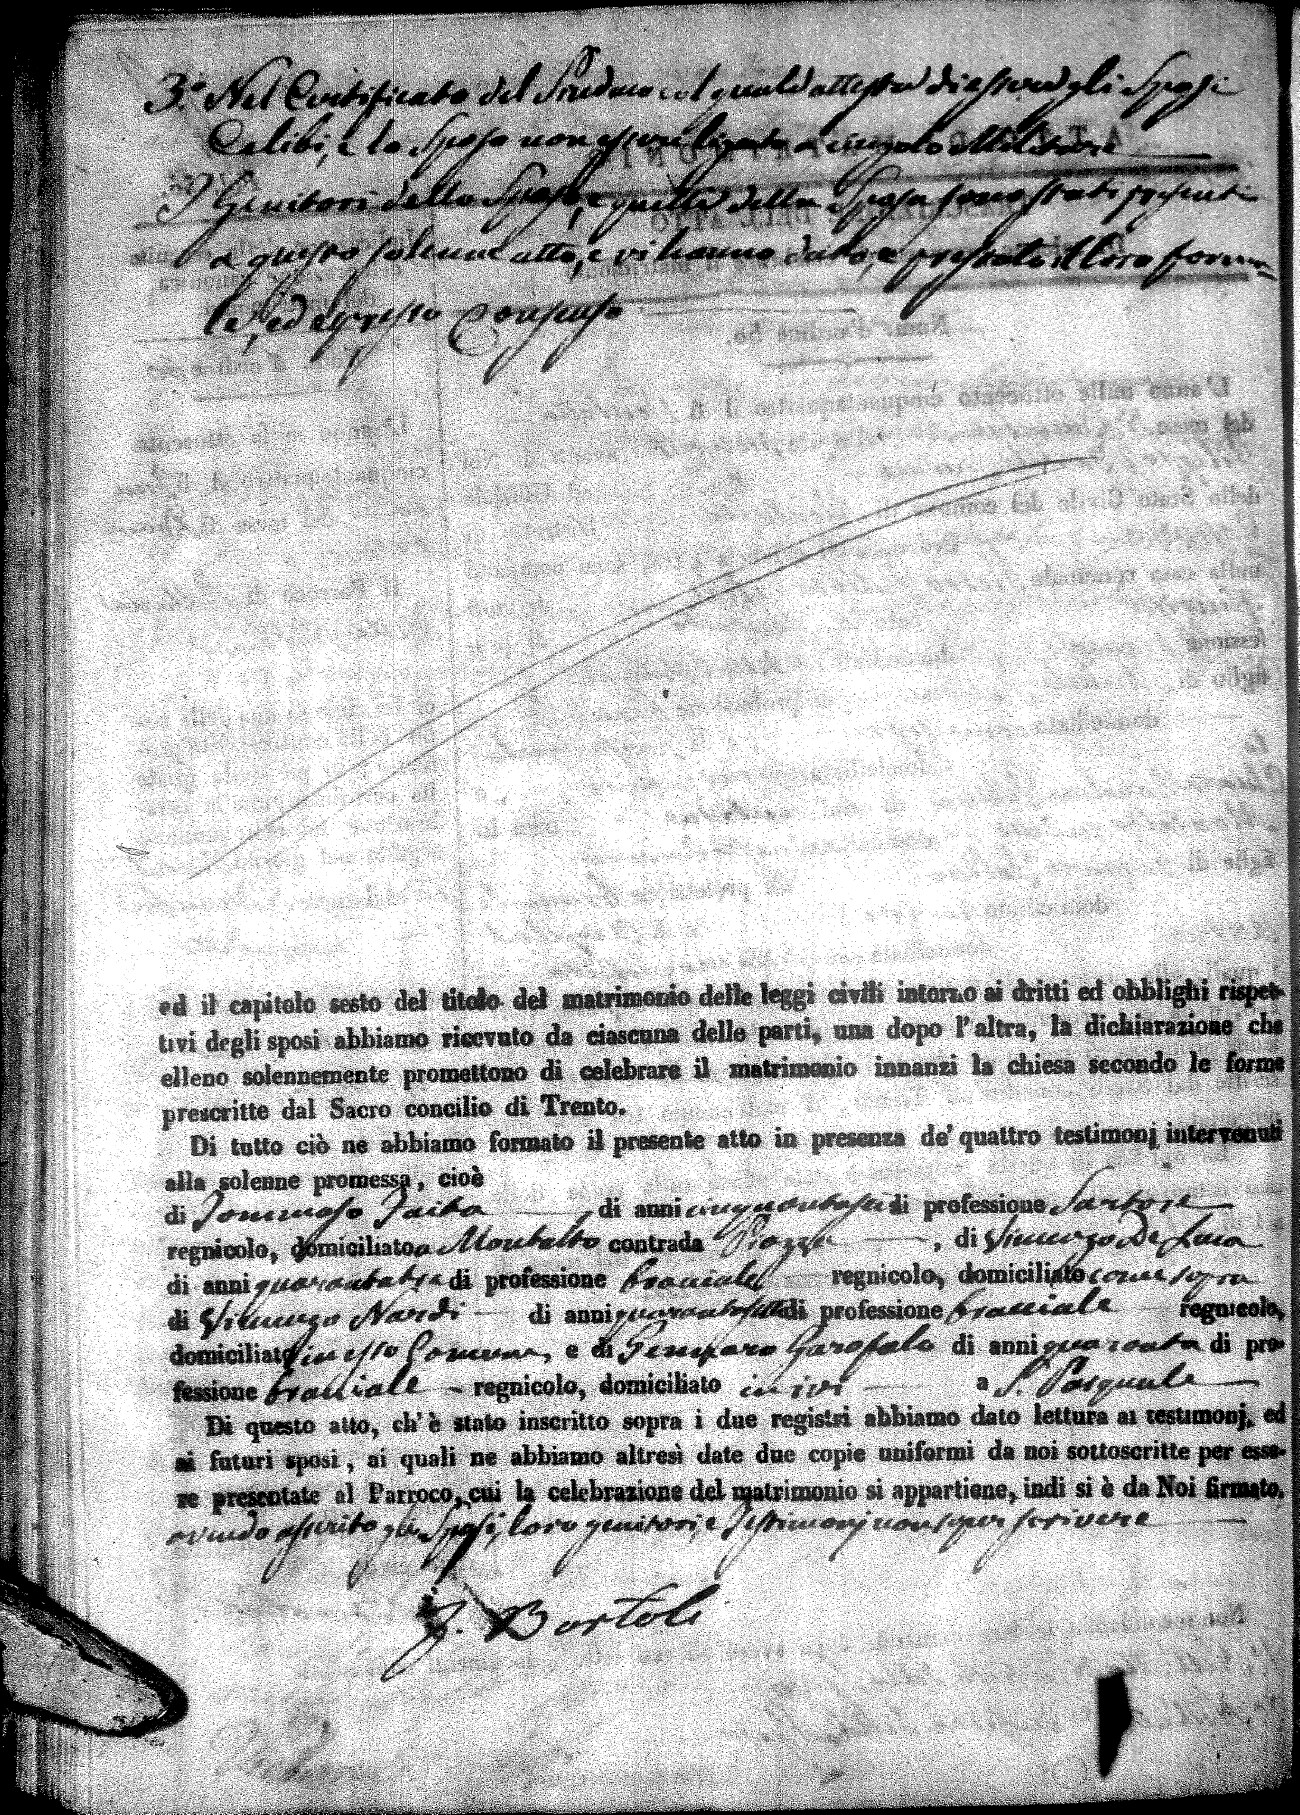 3.° Nel Certificato del Sindaco col quale attesta di essere gli Sposi
Celibi, e lo Sposo non essere ligato a cingolo Militare
I Genitori dello Sposo, e quelli della Sposa sono stati presenti
a questo solenne atto, e vi hanno dato, e prestato il loro forma
le, ed espresso Consenso
ed il capitolo sesto del titolo del matrimonio delle leggi civili intorno ai dritti ed obblighi rispet-
tivi degli sposi abbiamo ricevuto da ciascuna delle parti, una dopo l'altra, la dichiarazione che
elleno solennemente promettono di celebrare il matrimonio innanzi la chiesa secondo le forme
prescritte dal Sacro concilio di Trento.
Di tutto ciò ne abbiamo formato il presente atto in presenza de' quattro testimonj intervenuti
alla solenne promessa, cioè
di Tommaso Taiba di anni cinquantasei di professione Sartore
regnicolo, domiciliato a Montalto contrada Piazza, di Vincenzo De Luca
di anni quarantatre di professione bracciale regnicolo, domiciliato come sopra
di Vincenzo Nardi di anni quarantasette di professione bracciale regnicolo,
domiciliato in esso Comune, e di Gennaro Garofalo di anni quaranta di pro-
fessione bracciale regnicolo, domiciliato in ivi a S. Pasquale
Di questo atto, ch'è stato inscritto sopra i due registri abbiamo dato lettura ai testimonj, ed
ai futuri sposi, ai quali ne abbiamo altresì date due copie uniformi da noi sottoscritte per esse-
re presentate al Parroco, cui la celebrazione del matrimonio si appartiene, indi si è da Noi firmato,
avendo asserito gli Sposi, loro genitori, e Testimonj non saper scrivere
J. Bartoli